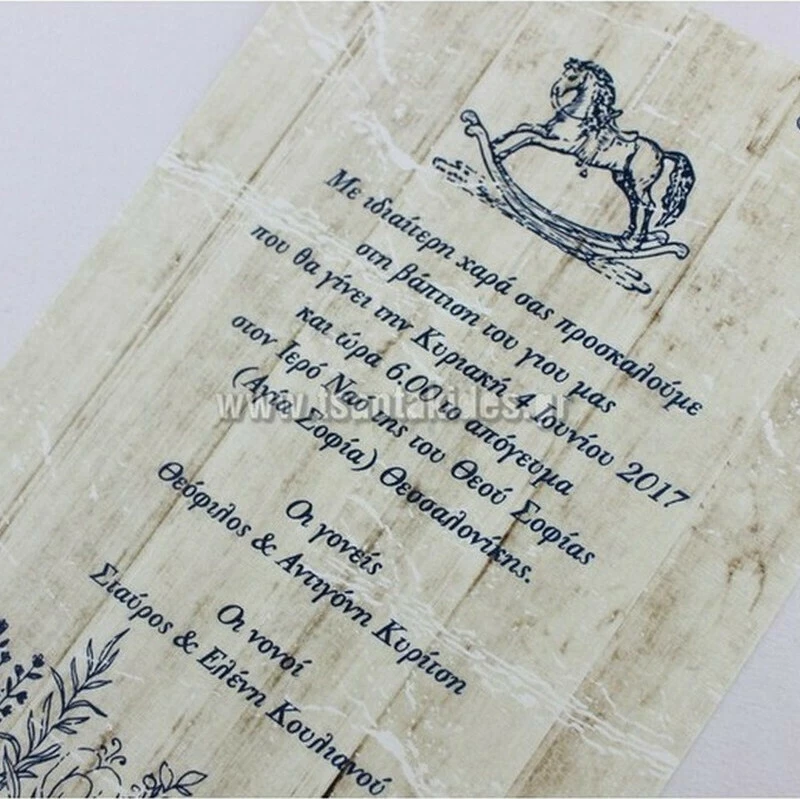 Με ιδιαίτερη χαρά σας προσκαλούμε
στη βάπτιση του γιου μας
που θα γίνει την Κυριακή 4 Ιουνίου 2017
και ώρα 6.00 το απόγευμα
στον Ιερό Ναό της του Θεού Σοφίας
(Αγία Σοφία) Θεσσαλονίκης.
Οι γονείς
Θεόφιλος & Αντιγόνη Κυρίτση
Οι νονοί
Σταύρος & Ελένη Κουλιανού
www.tsantakides.gr